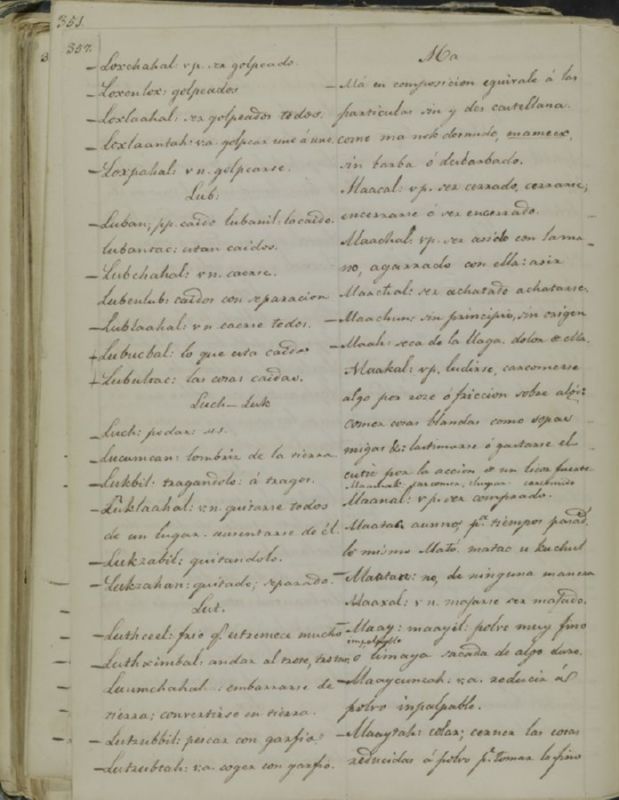 351.
357.
Loxchahal: v p. ser golpeado.
Loxenlox: golpeados
Loxlaahal: ser golpeados todos.
Loxlaantah: v.a. golpear uno á uno.
Loxpahal: v n. golpearse.
Lub:
Luban; pp. caido lubanil: lo caido.
lubantac: estan caidos.
Lubchahal: v n. caerse.
Lubenlub: caidos con separacion
Lublaahal: v n caerse todos.
Lubucbal: lo que esta caido
Lubultac: las cosas caidas.
Luch_Luk
Luch: pedar: us.
Lucumcan: lombriz de la tierra
Lukbil: tragandolo: á tragos.
Luklaahal: v.n. quitarse todos
de un lugar. ausentarse de él.
Lukzabil: quitandolo.
Lukzahan: quitado; separado.
Lut.
Luthceel: frio qe. estremece mucho
Luthximbal: andar al trote, trotar.
Luumchahal: embarrarse de
tierra; convertirse en tierra.
Lutzubbil: pescar con garfio.
Lutzubtah: v.a. coger con garfio.
Ma
Má en composicion equivale á las
particulas sin y des castellana.
como ma nok desnudo, enameex,
sin barba ó desbarbado.
Maacal: v p. ser cerrado, cerrarse;
encerrarse ó ser encerrado.
Maachal: v p. ser asido con la ma_
no, agarrado con ella: asir
Maachal: ser achatado achatarse.
Maachun: sin principio, sin origen
Maah: seca de la llaga. dolor de ella.
Maakal: v p. ludirse, carcomerse
algo por roze ó friccion sobre algo:
comer cosas blandas como sopas
migas &: lastimarse ó gastarse el
cutis por la accion de un licor fuerte
Maanal: v p. ser comprado.
aunno, pa. tiempos pasad.
lo mismo Mató. matac u kuchul
no, de ninguna manera
Maaxal: v n. majarse ser majado.
Maay: maayil: polvo muy fino
impalpable
ó limaya sacada de algo duro.
Maaycunzah: v.a. reducir á
polvo inpalpable.
Maaytah: colar; cerner las cosas
reducidas á polvo pa. tomar lo fino